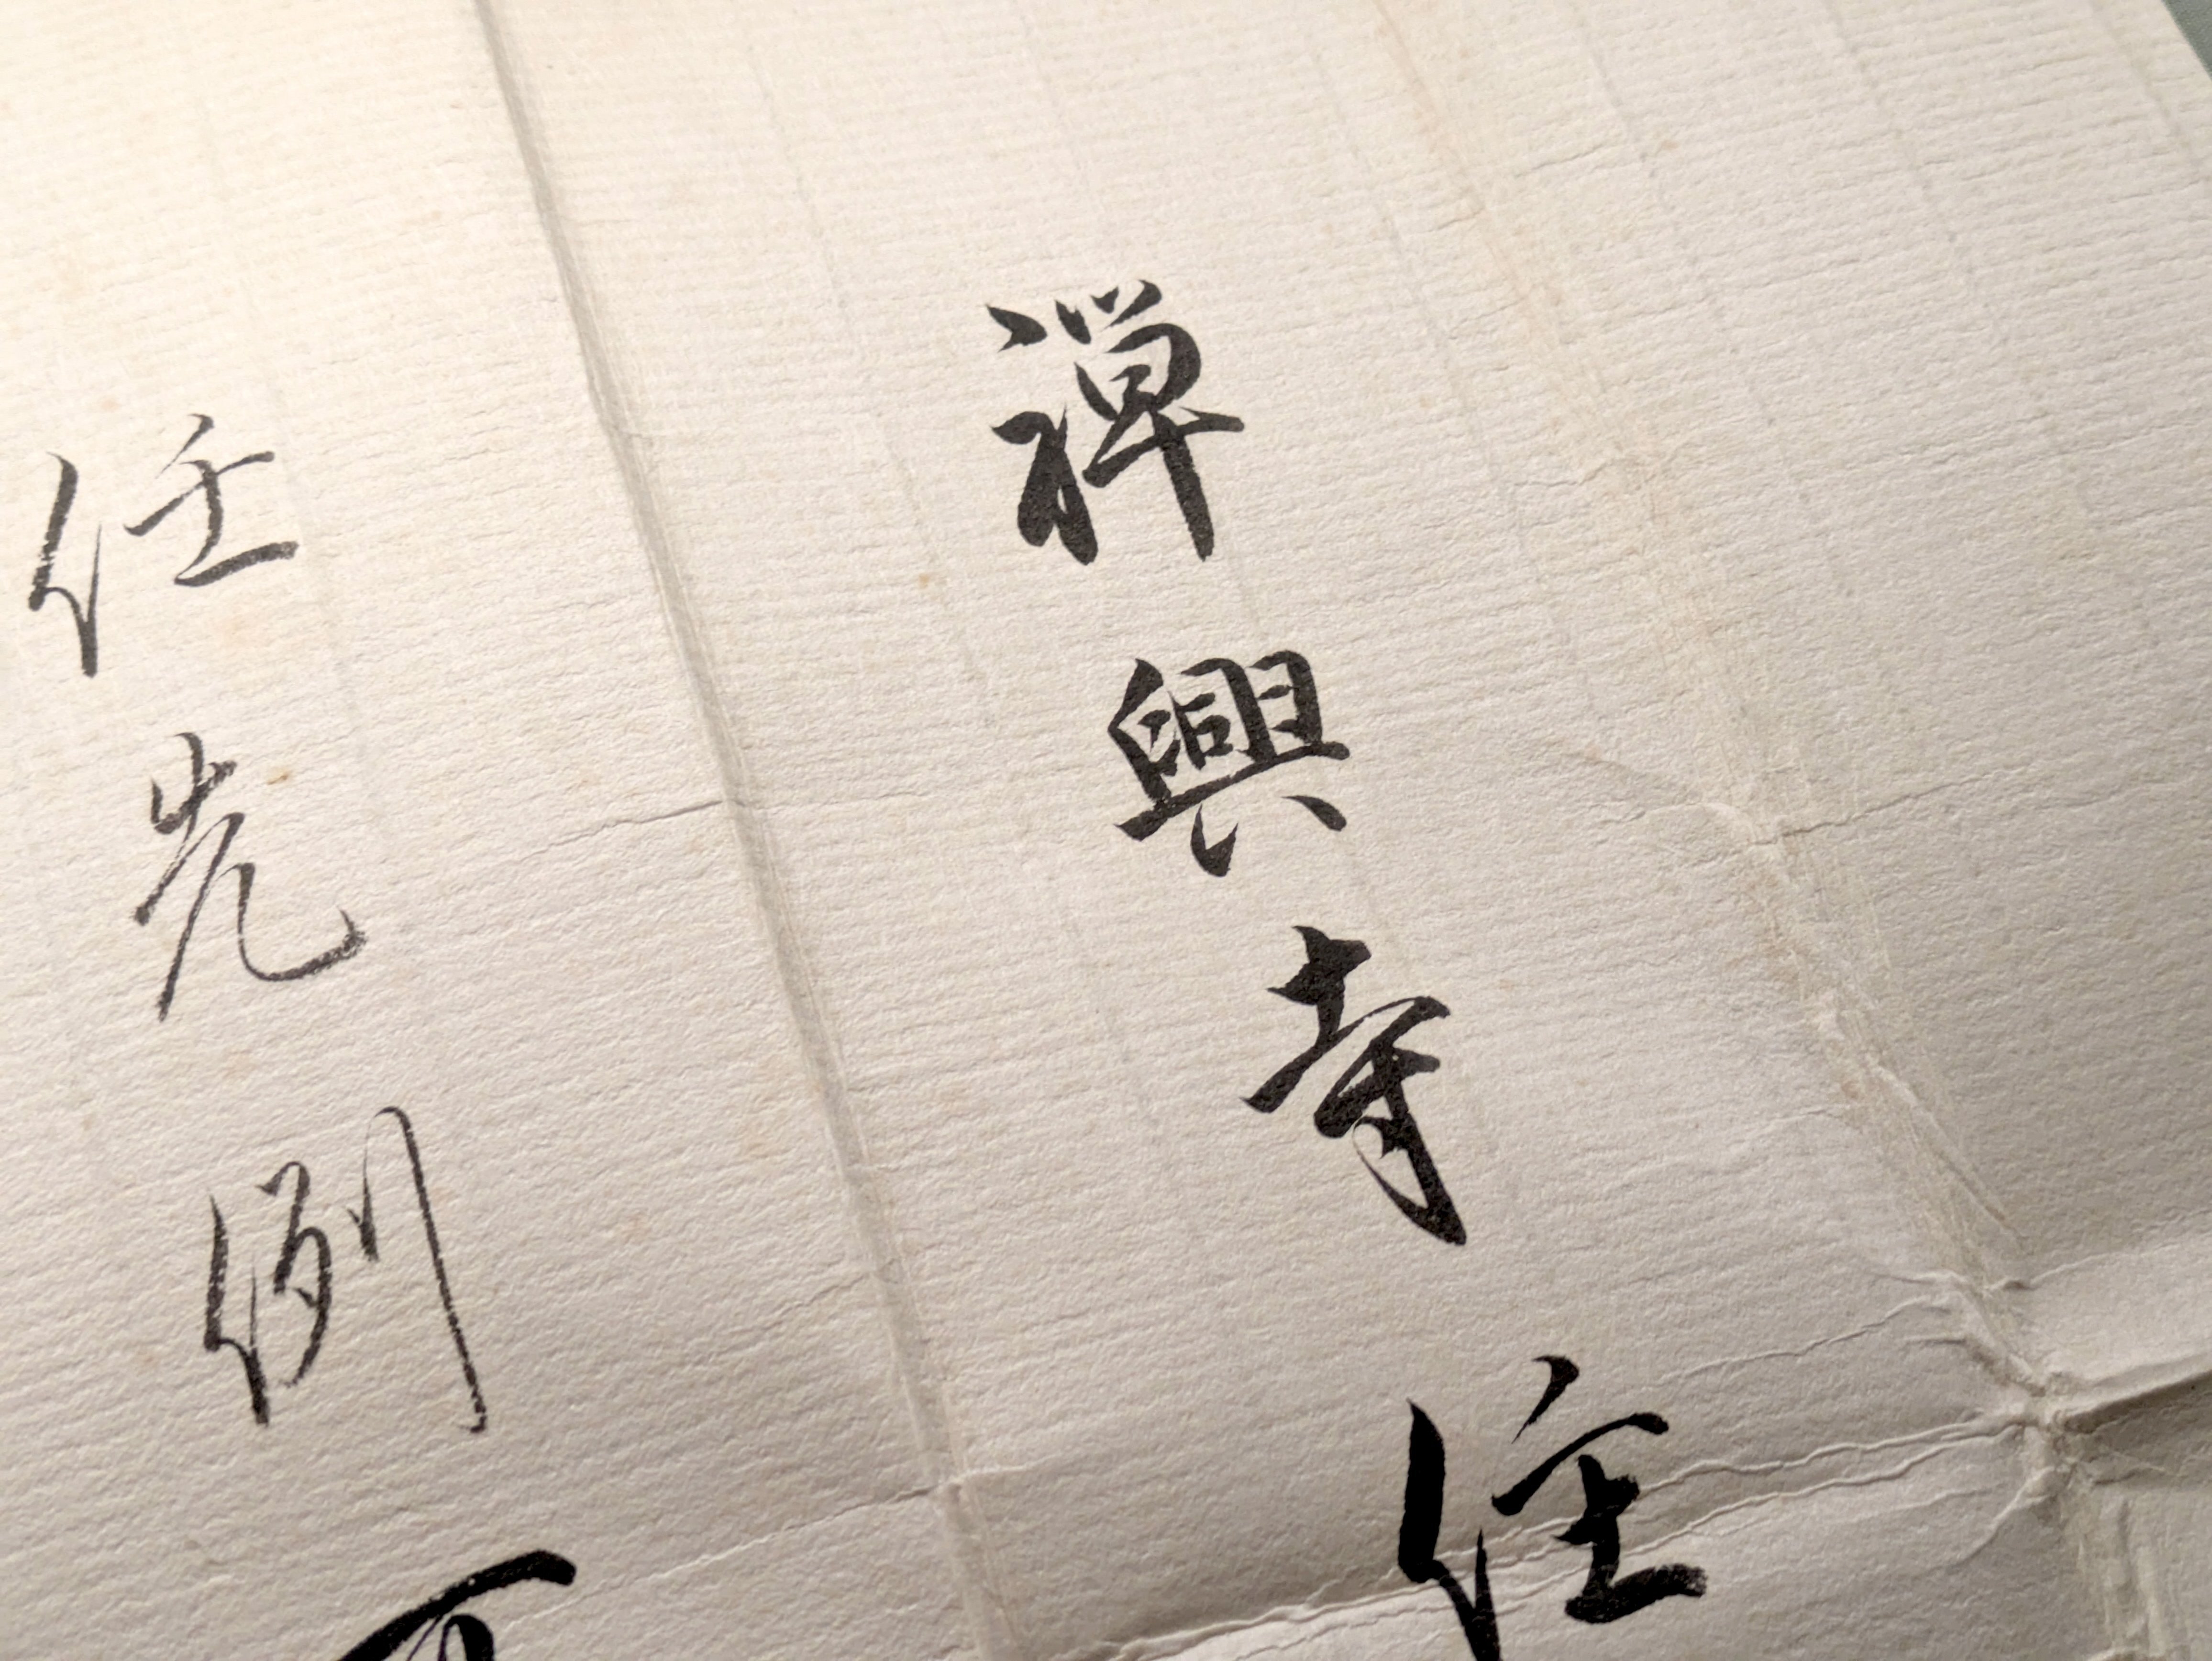 禅興寺住
任先例